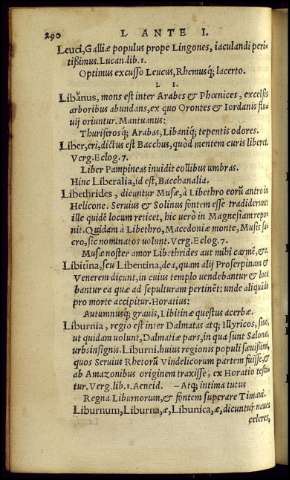 290 L ANTE I.
Leuci, Galliæ populus prope Lingones, iaculandi peri-
tißimus. Lucan. lib. 1.
Optimus excusso Leucus, Rhemusq́; lacerto.
L I.
Libanus, mons est inter Arabes & Phœnices, excelsis
arboribus abundans, ex quo Orontes & Iordanis flu-
uij oriuntur. Mantuanus:
Thuriferosq́; Arabas, Libaniq́; tepentis odores.
Liber, eri, dictus est Bacchus, quòd mentem curis liberat.
Verg. Eclog. 7.
Liber Pampineas inuidit collibus umbras.
Hinc Liberalia, id est, Bacchanalia.
Libethrides, dicuntur Musæ, à Libethro
Helicone. Seruius & Solinus fontem esse tradiderunt
ille quidē locum reticet, hic uerò in Magnesiam repo-
nit. Quidam à Libethro, Macedoniæ monte, Musis sa-
cro, sic nominatas uolunt. Verg. Eclog.
Musæ noster amor Libethrides aut mihi carmē, &c.
Libitina, seu Libencina, dea, quam alij Proserpinam &
Venerem dicunt, in cuius templo uendebantur & loca
bantur ea quæ ad sepulturam pertinēt: unde aliquid
pro morte accipitur. Horatius:
Autumnusq́; grauis, Libitinæ quæstus acerbæ.
Liburnia, regio est inter Dalmatas atq; Illyricos, siue,
ut quidam uolunt, Dalmatiæ pars, in qua sunt Salonæ
urbs insignis. Liburni huius regionis populi sæuißimi,
quos Seruius Rhetorū Vindelicorum partem fuisse, &
ab Amazonibus originem traxisse, ex Horatio testa-
tur. Verg. lib. 1. Aeneid. — Atq; intima tutus
Regna Liburnorum, & fontem superare Timaui.
Liburnum, Liburna, æ, Libunica, æ, dicuntur naues
celeres,